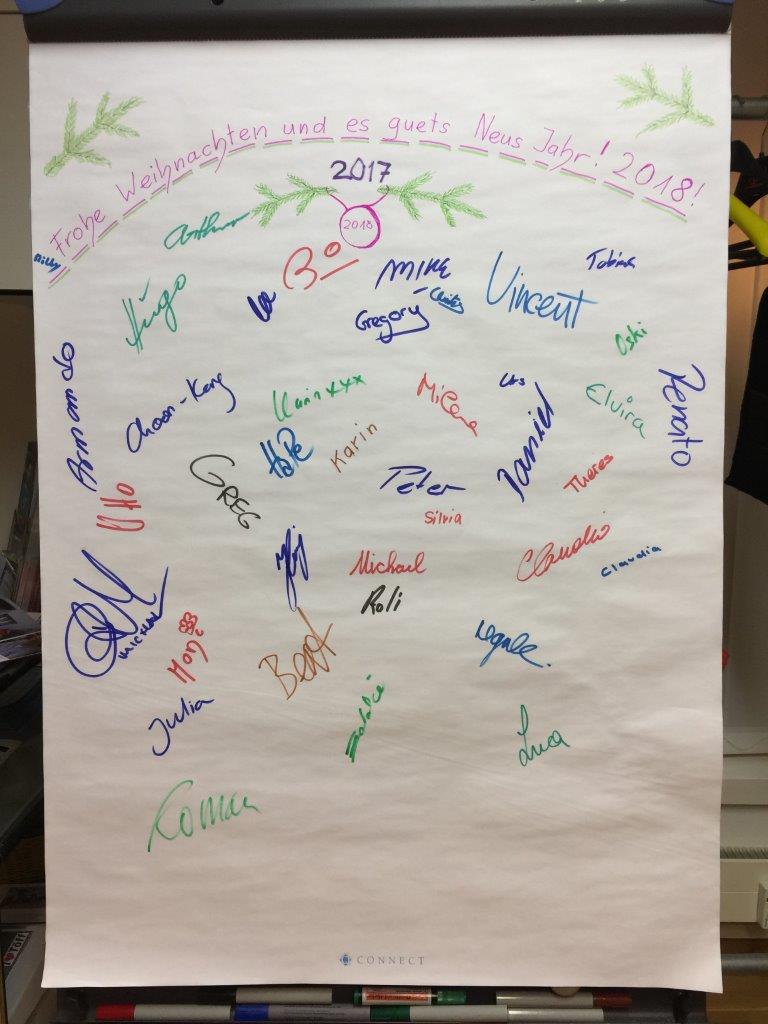 Frohe Weihnachten und es guets Neus Jahr! 2018!
2017
2018
Arthur
Billy
Bo
Mike
Tobias
Hugo
Christy
Vincent
Gregory
Oski
Armando
Renato
Choon-Keng
Karin xxx
Milena
Urs
Elvira
HaPe
Karin
Daniel
GREG
Peter
Theres
Otto
Silvia
Claudio
Michael
Claudia
Roli
MICHAEL
Moni
Beat
Julia
Natalie
Luca
Roman
CONNECT